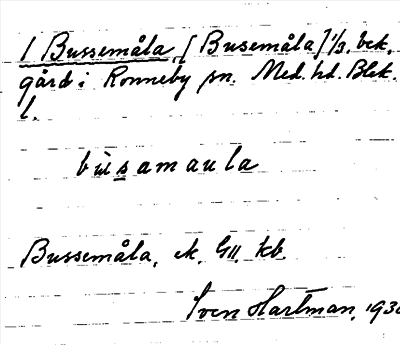 1 Bussemåla, [Busemåla] 1/3. bek.
gård i Ronneby sn. Med. hd. Blek.
l.
bùsamaula
Bussemåla, ek. G11. kb.
Sven Hartman, 193